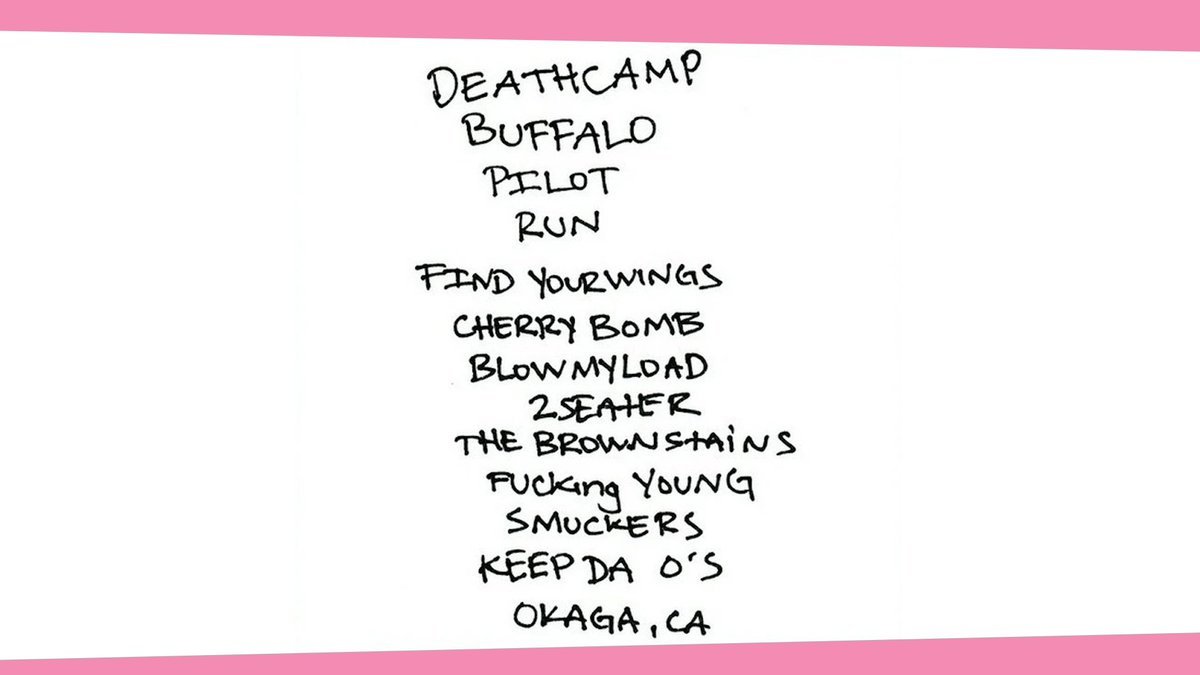 DEATHCAMP
BUFFALO
PILOT
RUN
FIND YOURWINGS
CHERRY BOMB
BLOWMYLOAD
2SEATER
THE BROWNSTAINS
FUCKing YOUNG
SMUCKERS
KEEP DA O'S
OKAGA, CA